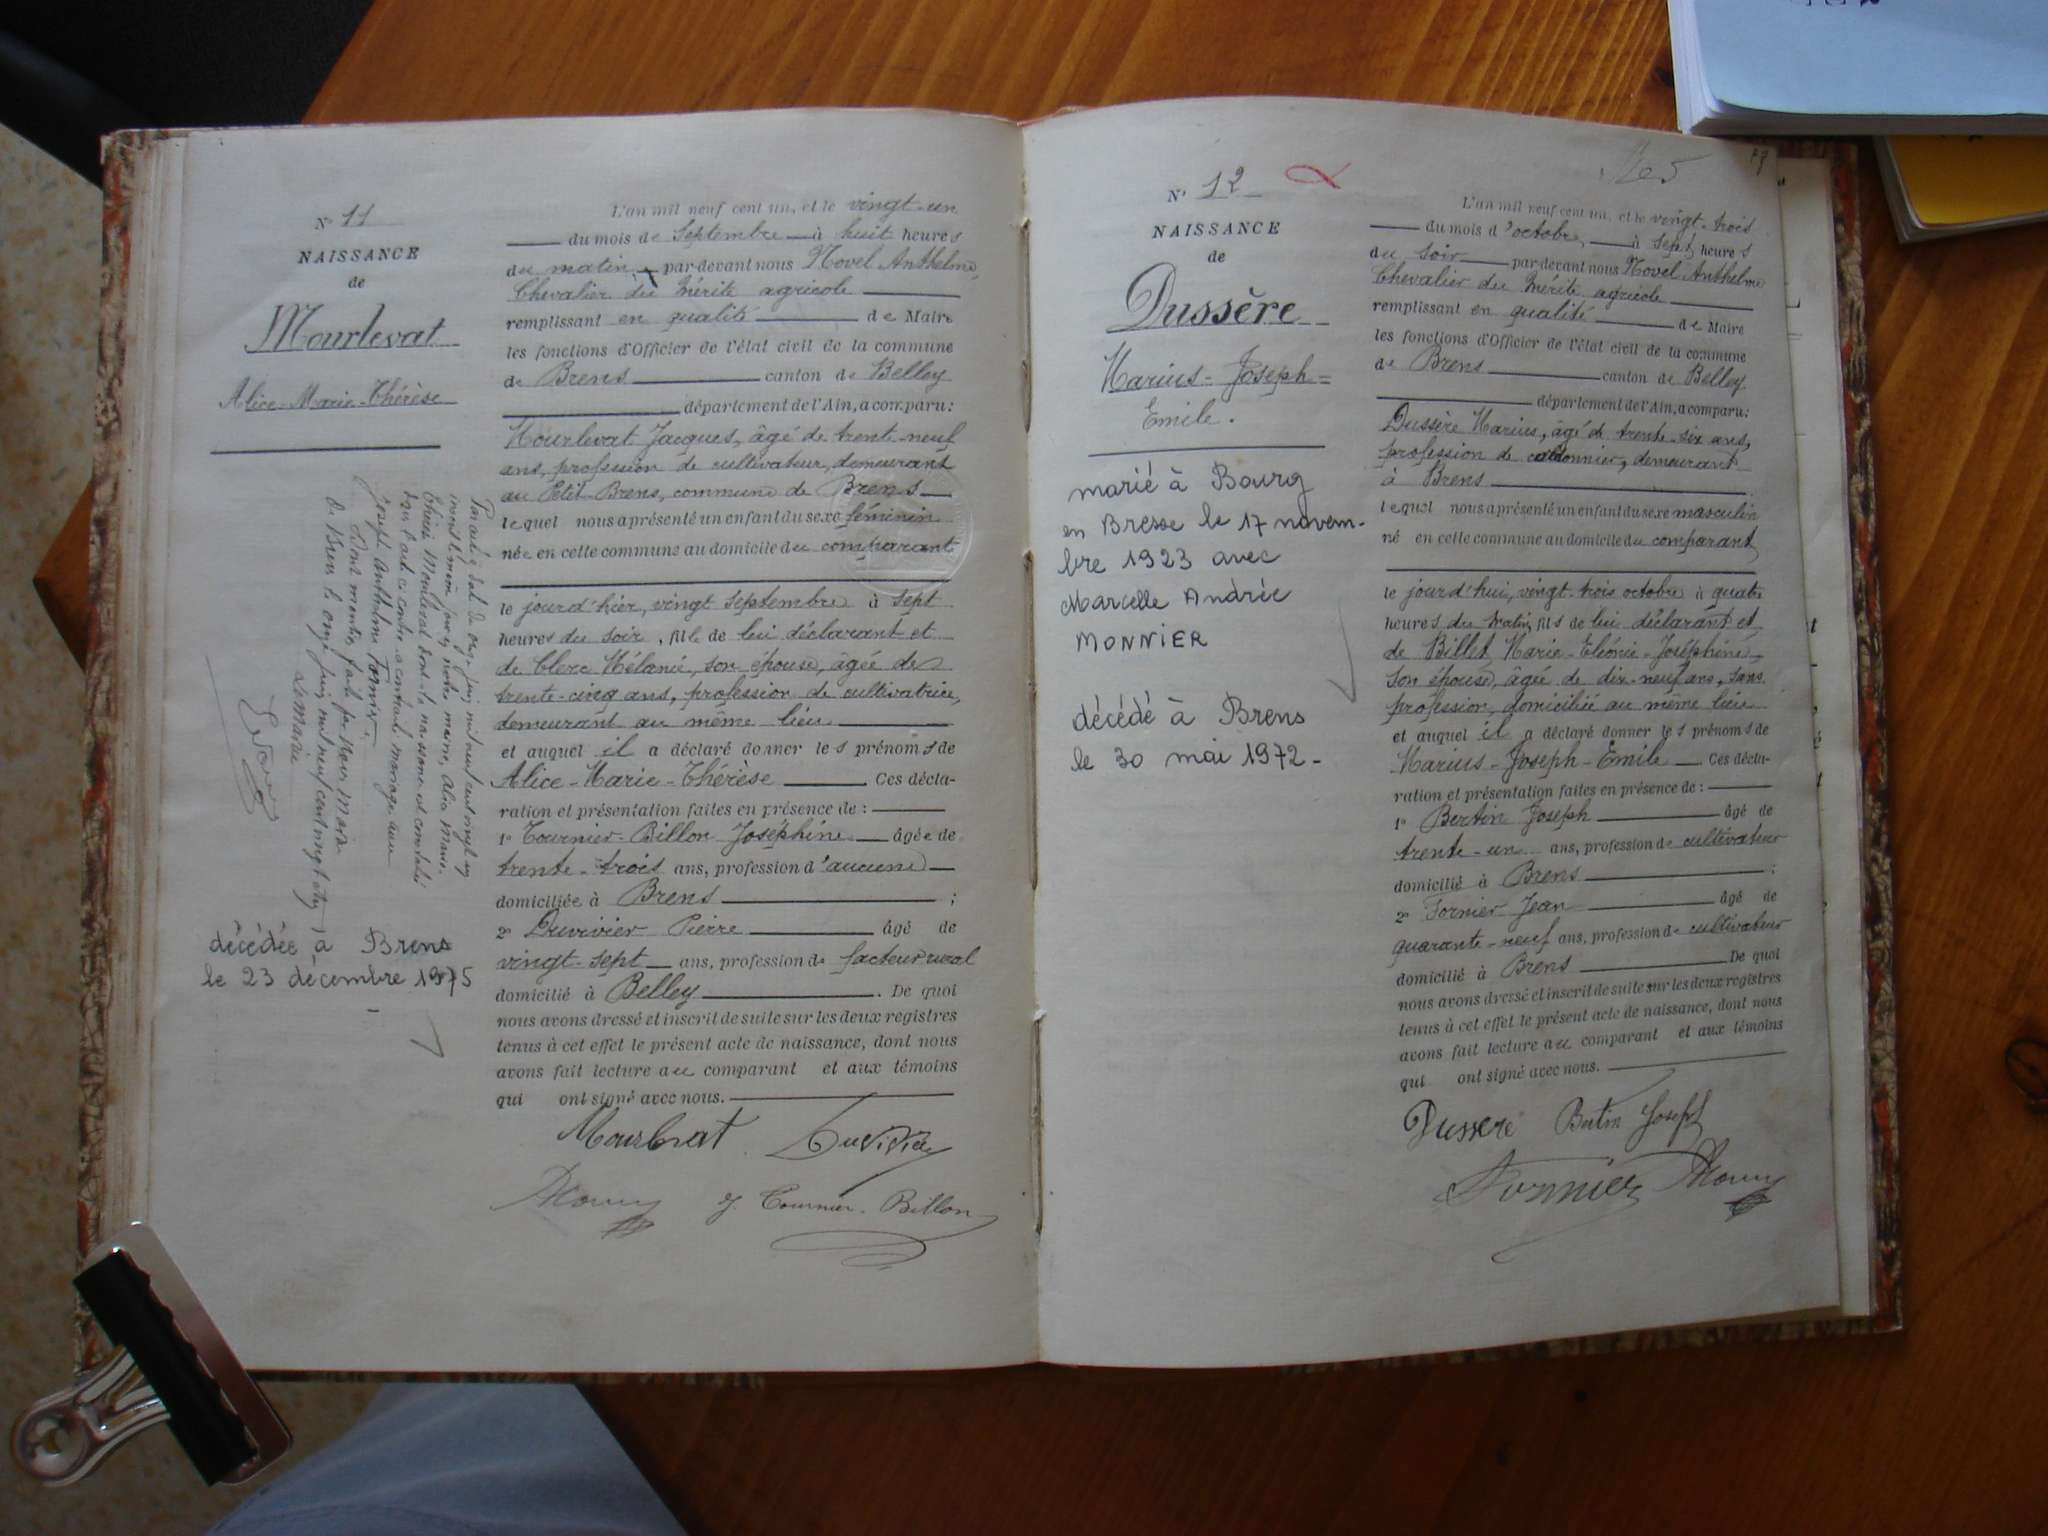 N° 11
NAISSANCE
de
Mourlevat
Alice-Marie-Thérèse
Par acte en date du onze juin mil neuf cent vingt un
inscrit en mairie, Alice Marie
Thérèse Mourlevat dont la naissance est constatée
par l'acte ci-contre a contracté mariage avec
Joseph Anthelme Fornier.
Dont mention faite par Nous, Maire
de Brens le onze juin mil neuf cent vingt un
Le Maire
décédée à Brens
le 23 décembre 1975
L'an mil neuf cent un, et le vingt-un
du mois de Septembre à huit heures
du matin, par-devant nous Hovel Anthelme,
Chevalier du Mérite agricole
remplissant en qualité de Maire
les fonctions d'Officier de l'état civil de la commune
de Brens canton de Belley
département de l'Ain, a comparu:
Mourlevat Jacques, âgé de trente-neuf
ans, profession de cultivateur, demeurant
au Petit-Brens, commune de Brens
lequel nous a présenté un enfant du sexe féminin
née en cette commune au domicile du comparant
le jour d'hier, vingt septembre à sept
heures du soir, fille de lui déclarant et
de Clerc Mélanie, son épouse, âgée de
trente-cinq ans, profession de cultivatrice,
demeurant au même lieu
et auquel il a déclaré donner les prénoms de
Alice-Marie-Thérèse Ces décla-
ration et présentation faites en présence de :
1° Tournier-Billon Joséphine âgée de
trente-trois ans, profession d'aucune
domiciliée à Brens ;
2° Duvivier Pierre âgé de
vingt-sept ans, profession de facteur rural
domicilié à Belley. De quoi
nous avons dressé et inscrit de suite sur les deux registres
tenus à cet effet le présent acte de naissance, dont nous
avons fait lecture au comparant et aux témoins
qui ont signé avec nous.
Mourlevat Duvivier
J. Tournier-Billon
N° 12
NAISSANCE
de
Dussère
Marius-Joseph=
Emile.
marié à Bourg
en Bresse le 17 novem-
bre 1923 avec
Marcelle Andrée
MONNIER
décédé à Brens
le 30 mai 1972-
L'an mil neuf cent un, et le vingt-trois
du mois d'octobre, à sept heures
du soir par-devant nous Hovel Anthelme
Chevalier du Mérite agricole
remplissant en qualité de Maire
les fonctions d'Officier de l'état civil de la commune
de Brens canton de Belley
département de l'Ain, a comparu:
Dussère Marius, âgé de trente-six ans,
profession de cordonnier, demeurant
à Brens
lequel nous a présenté un enfant du sexe masculin
né en cette commune au domicile du comparant
le jour d'hui, vingt-trois octobre à quatre
heures du matin, fils de lui déclarant et
de Billet Marie-Eléonie-Joséphine,
son épouse, âgée de dix-neuf ans, sans
profession, domiciliée au même lieu
et auquel il a déclaré donner les prénoms de
Marius-Joseph-Emile Ces décla-
ration et présentation faites en présence de :
1° Bertin Joseph âgé de
trente-un ans, profession de cultivateur
domicilié à Brens ;
2° Fornier Jean âgé de
quarante-neuf ans, profession de cultivateur
domicilié à Brens De quoi
nous avons dressé et inscrit de suite sur les deux registres
tenus à cet effet le présent acte de naissance, dont nous
avons fait lecture au comparant et aux témoins
qui ont signé avec nous.
Dussere Bertin Joseph
Fornier